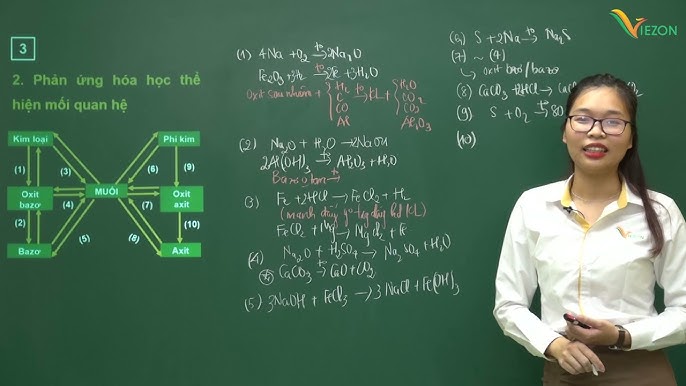 3
2. Phản ứng hóa học thể
hiện mối quan hệ
Kim loại
Phi kim
(1)
(3)
(6)
(9)
Oxit
bazơ
MUỐI
Oxit
axit
(2)
(4)
(7)
(10)
(5)
(8)
Bazơ
Axit
(1) 4Na + O₂ →tº 2Na₂O
Fe₂O₃ + 3H₂ →tº 2Fe + 3H₂O
Oxit sau nhôm + { H₂ C CO Al →tº KL + { H₂O CO₂ CO₂ Al₂O₃
(2) Na₂O + H₂O → 2NaOH
2Al(OH)₃ →tº Al₂O₃ + H₂O
Bazơ →tº
(3) Fe + 2HCl → FeCl₂ + H₂
FeCl₂ + Mg → MgCl₂ + Fe
(4) Na₂O + H₂SO₄ → Na₂SO₄ + H₂O
CaCO₃ →tº CaO + CO₂
(5) 3NaOH + FeCl₃ → 3NaCl + Fe(OH)₃
(6) S + 2Na →tº Na₂S
(7) ~ (4)
↳ oxit bazơ/bazơ
(8) CaCO₃ + 2HCl →
(9) S + O₂ →tº SO
(10)
VIEZON
VIEZON